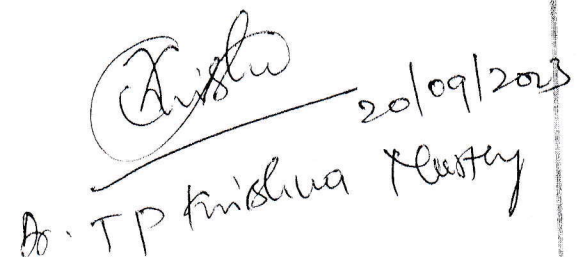 Krishna
20/09/2023
Dr. T P Krishna Murthy